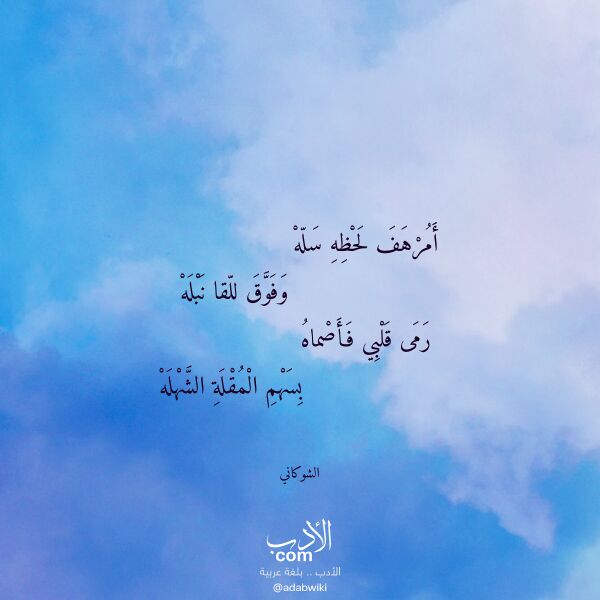 أَمُرْهَفَ لَحْظِهِ سَلّهْ
وَفَوَّقَ للّقا نَبْلَهْ
رَمَى قَلْبِي فَأَصْماهُ
بِسَهْمِ الْمُقْلَةِ الشَّهْلَهْ
الشوكاني
الأدب
com
الأدب .. بلغة عربية
@adabwiki